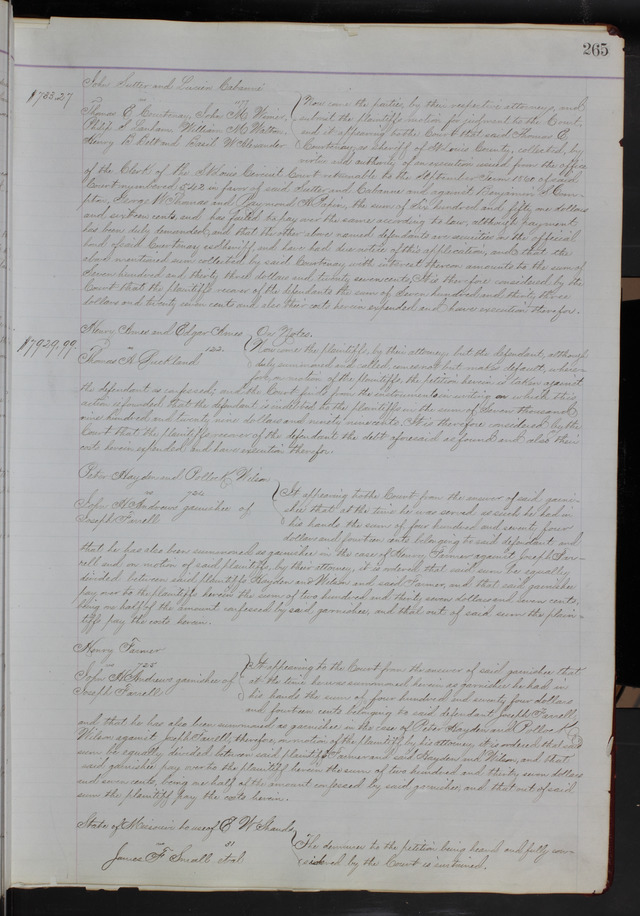 265
John Sutter and Lucien Cabanné
$733.27
vs
Thomas E Courtenay, John M Wimer,
Philip S Lanham, William M Walton,
Henry B Belt and Basil W Alexander
Now come the parties, by their respective attorneys, and
submit the plaintiffs motion for judgment to the Court,
and it appearing to the Court that said Thomas E
Courtenay, as Sheriff of St Louis County, collected, by
virtue and authority of an execution issued from the office
of the Clerk of the St Louis Circuit Court returnable to the September Term 1860 of said
Court numbered 542 in favor of said Sutter and Cabanne and against Benjamin
George W Thomas and Raymond the sum of Six hundred and fifty nine dollars
and sixteen cents, and has failed to pay over the same according to law, although payment
has been duly demanded, and that the other above named defendants are securities in the official
bond of said Courtenay as Sheriff, and have had due notice of this application, and that the
above mentioned sum collected by said Courtenay with interest thereon amounts to the sum of
Seven hundred and thirty three dollars and twenty seven cents, It is therefore considered by the
Court that the plaintiffs recover of the defendants the sum of Seven hundred and thirty three
dollars and twenty seven cents and also their costs herein expended and have execution therefor.
Henry Ames and Edgar Ames, On Notes.
$7929.99
vs 122
Thomas H Buckland
Now come the plaintiffs, by their attorney but the defendant, although
duly summoned and called, comes not but makes default, where-
fore, on motion of the plaintiffs, the petition herein is taken against
the defendant as confessed, and the Court finds from the instruments in writing on which this
action is founded, that the defendant is indebted to the plaintiffs in the sum of Seven thousand
nine hundred and twenty nine dollars and ninety nine cents. It is therefore considered by the
Court that the plaintiffs recover of the defendant the debt aforesaid as found and also their
costs herein expended and have execution therefor.
Peter Hayden and Pollock Wilson
vs 724
John H Andrews garnishee of
Joseph Farrell
It appearing to the Court from the answer of said garni-
shee that at the time he was served as such he had in
his hands the sum of four hundred and seventy four
dollars and fourteen cents belonging to said defendant, and
that he has also been summoned as garnishee in the case of Henry Farmer against Joseph Far-
rell and on motion of said plaintiffs, by their attorney, it is ordered that said sum be equally
divided between said plaintiffs Hayden and Wilson and said Farmer, and that said garnishee
pay over to the plaintiffs herein the sum of two hundred and thirty seven dollars and seven cents,
being one half of the amount confessed by said garnishee, and that out of said sum the plain-
tiffs pay the costs herein.
Henry Farmer
vs 725
John H Andrews garnishee of
Joseph Farrell
It appearing to the Court from the answer of said garnishee that
at the time he was summoned herein as garnishee he had in
his hands the sum of four hundred and seventy four dollars
and fourteen cents belonging to said defendant Joseph Farrell,
and that he has also been summoned as garnishee in the case of Peter Hayden and Pollock
Wilson against Joseph Farrell, therefore, on motion of the plaintiff by his attorney, it is ordered that said
sum be equally divided between said plaintiff Farmer and said Hayden and Wilson, and that
said garnishee pay over to the plaintiff herein the sum of two hundred and thirty seven dollars
and seven cents, being one half of the amount confessed by said garnishee, and that out of said
sum the plaintiff pay the costs herein.
State of Missouri to use of E W Shands
vs 31
James F Small et al
The demurrer to the petition being heard and fully con-
sidered by the Court is sustained.